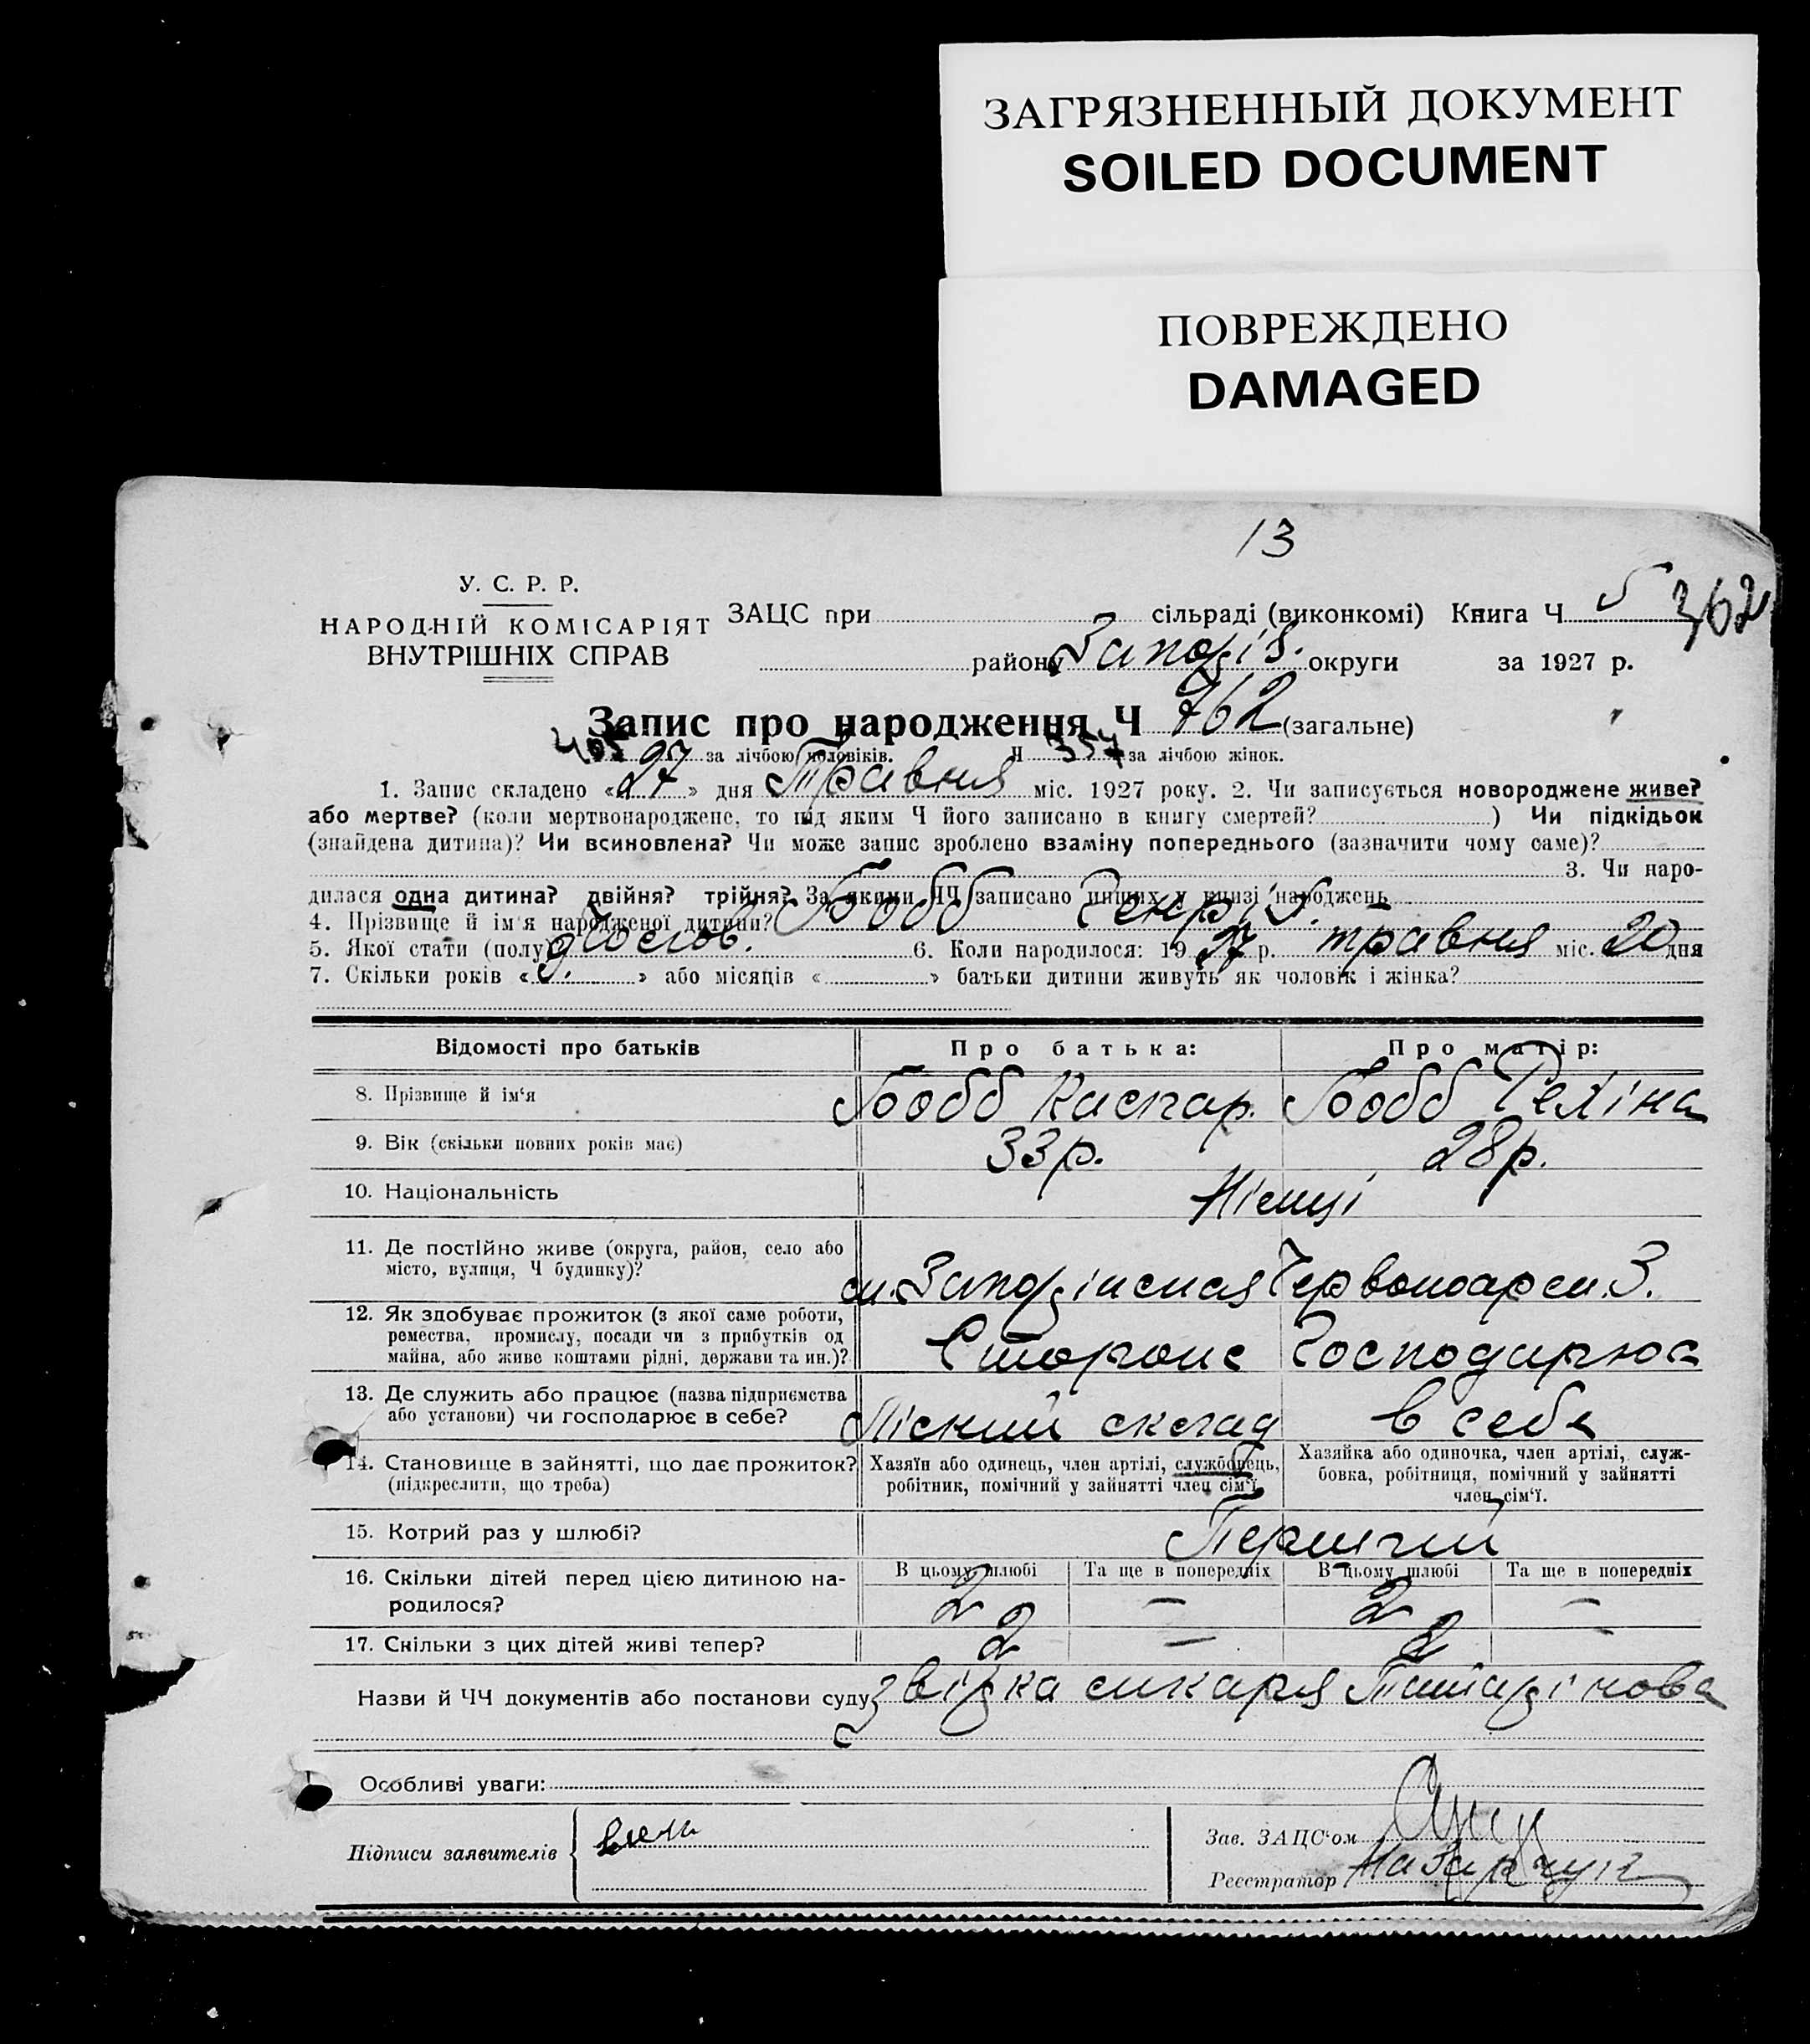 ЗАГРЯЗНЕННЫЙ ДОКУМЕНТ
SOILED DOCUMENT
ПОВРЕЖДЕНО
DAMAGED
13
У. С. Р. Р.
НАРОДНІЙ КОМІСАРІЯТ
ВНУТРІШНІХ СПРАВ
ЗАЦС при сільраді (виконкомі) Книга Ч 5 362
району Запоріз. округи за 1927 р.
Запис про народження Ч 762 (загальне)
405 за лічбою чоловіків. Ч 357 за лічбою жінок.
1. Запис складено « 27 » дня Травня міс. 1927 року. 2. Чи записується новороджене живе?
або мертве? (коли мертвонароджене, то під яким Ч його записано в книгу смертей? ) Чи підкідьок
(знайдена дитина)? Чи всиновлена? Чи може запис зроблено взаміну попереднього (зазначити чому саме)?
3. Чи наро-
дилася одна дитина? двійня? трійня? За якими ЧЧ записано инших у книзі народжень
4. Прізвище й ім'я народженої дитини? Бобб Генріх.
5. Якої стати (полу)? чолов. 6. Коли народилося: 19 27 р. травня міс. 20 дня
7. Скільки років « 9. » або місяців « » батьки дитини живуть як чоловік і жінка?
Відомості про батьків Про батька: Про матір:
8. Прізвище й ім'я Бобб Каспар. Бобб Реліна
9. Вік (скільки повних років має) 33 р. 28 р.
10. Національність Німці
11. Де постійно живе (округа, район, село або
місто, вулиця, Ч будинку)? Червоноарм. 3.
12. Як здобуває прожиток (з якої саме роботи,
ремества, промислу, посади чи з прибутків од
майна, або живе коштами рідні, держави та ин.)? Сторож Господарює
13. Де служить або працює (назва підприємства
або установи) чи господарює в себе? Лісний склад в себе
14. Становище в зайнятті, що дає прожиток?
(підкреслити, що треба)
Хазяїн або одинець, член артілі, службовець,
робітник, помічний у зайнятті член сім'ї.
Хазяйка або одиночка, член артілі, служ-
бовка, робітниця, помічний у зайнятті
член сім'ї.
15. Котрий раз у шлюбі? Перший
В цьому шлюбі Та ще в попередніх В цьому шлюбі Та ще в попередніх
16. Скільки дітей перед цією дитиною на-
родилося? 2 — 2 —
17. Скільки з цих дітей живі тепер? 2 — 2 -
Назви й ЧЧ документів або постанови суду звідка
Особливі уваги:
Підписи заявителів
Зав. ЗАЦС'ом
Реєстратор